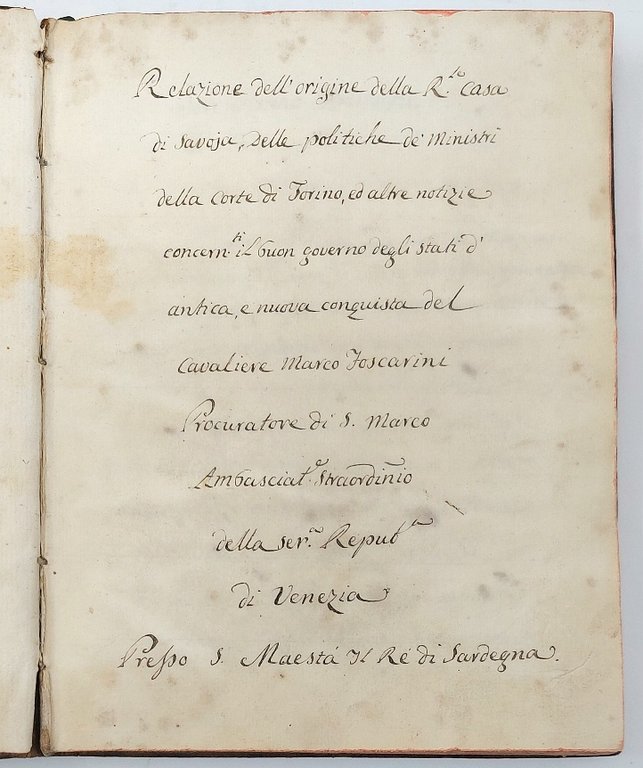 Relazione dell'origine della R.le Casa
di Savoja, Delle politiche de' Ministri
della Corte di Torino, ed altre notizie
concern.ti il buon governo degli stati d'
antica, e nuova conquista del
Cavaliere Marco Foscarini
Procuratore di S. Marco
Ambasciat.e straordin.io
della Ser.a Repub.a
di Venezia
Presso S. Maestá Il Ré di Sardegna.